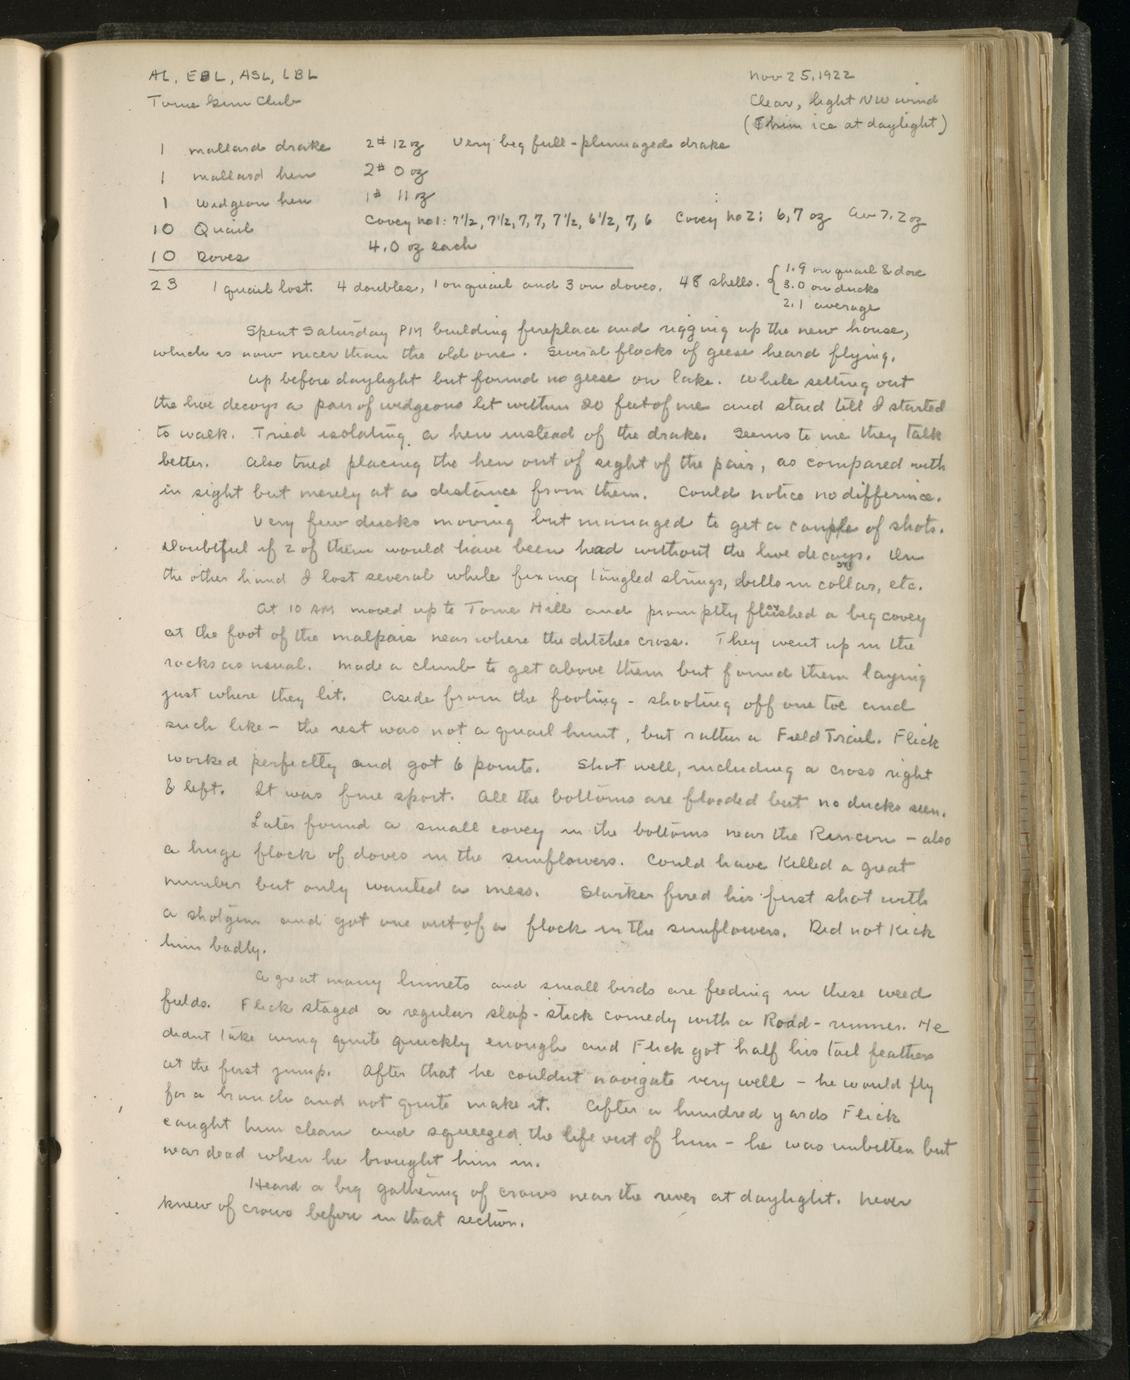 AL, EBL, ASL, LBL
Nov 25, 1922
Tome Gun Club
Clear, light NW wind
(Thin ice at daylight)
1 mallard drake 2# 12 oz Very big full-plumaged drake
1 mallard hen 2# 0 oz
1 widgeon hen 1# 11 oz
10 Quail Covey no 1: 7½, 7½, 7, 7, 7½, 6½, 7, 6 Covey no 2: 6, 7 oz av 7.2 oz
10 Doves 4.0 oz each
23 1 quail lost. 4 doubles, 1 on quail and 3 on doves. 48 shells. { 1.9 on quail & dove
3.0 on ducks
2.1 average
Spent Saturday PM building fireplace and rigging up the new house,
which is now nicer than the old one. Several flocks of geese heard flying.
Up before daylight but found no geese on lake. While setting out
the live decoys a pair of widgeons lit within 20 feet of me and staid till I started
to walk. Tried isolating a hen instead of the drake. Seems to me they talk
better. Also tried placing the hen out of sight of the pair, as compared with
in sight but merely at a distance from them. Could notice no difference.
Very few ducks moving but managed to get a couple of shots.
Doubtful if 2 of them would have been had without the live decoys. On
the other hand I lost several while fixing tangled strings, bills in collars, etc.
At 10 AM moved up to Tome Hill and promptly flushed a big covey
at the foot of the malpais near where the ditches cross. They went up in the
rocks as usual. Made a climb to get above them but found them laying
just where they lit. Aside from the footing - shooting off one toe and
such like - the rest was not a quail hunt, but rather a Field Trial. Flick
worked perfectly and got 6 points. Shot well, including a cross right
& left. It was fine sport. All the bottoms are flooded but no ducks seen.
Later found a small covey in the bottoms near the Rincon - also
a huge flock of doves in the sunflowers. Could have killed a great
number but only wanted a mess. Starker fired his first shot with
a shotgun and got one out of a flock in the sunflowers. Did not kick
him badly.
A great many linnets and small birds are feeding in these weed
fields. Flick staged a regular slap-stick comedy with a Road-runner. He
didnt take wing quite quickly enough and Flick got half his tail feathers
at the first jump. After that he couldnt navigate very well - he would fly
for a branch and not quite make it. After a hundred yards Flick
caught him clean and squeezed the life out of him - he was unbitten but
was dead when he brought him in.
Heard a big gathering of crows near the river at daylight. Never
knew of crows before in that section.